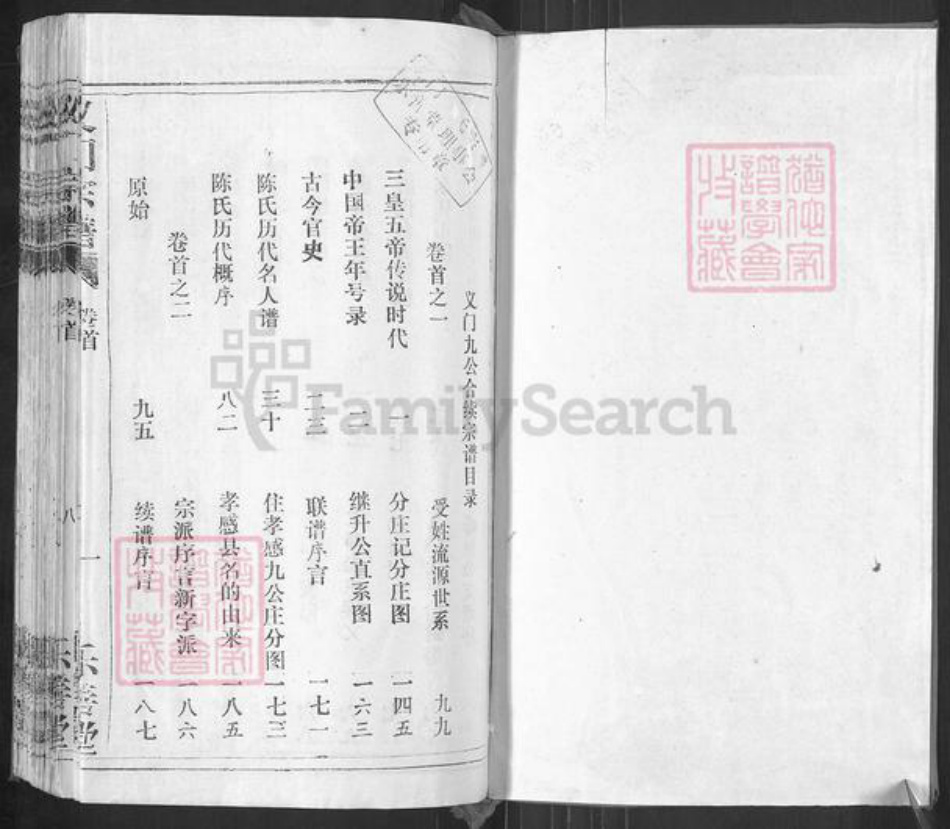 义门九公合续宗谱目录
卷首之一
三皇五帝传说时代 一
中国帝王年号录 一二
古今官史 二三
陈氏历代名人谱 三十
陈氏历代概序 八二
卷首之二
原始 九五
受姓流源世系 九九
分庄记分庄图 一四五
继升公直系图 一六三
联谱序言 一七一
住孝感九公庄分图 一七三
孝感县名的由来 一八五
宗派序言新字派 一八六
续谱序言 一八七
卷首
八
一
乐善堂
猶他家
譜學會
收藏
猶他家
譜學會
收藏
FamilySearch